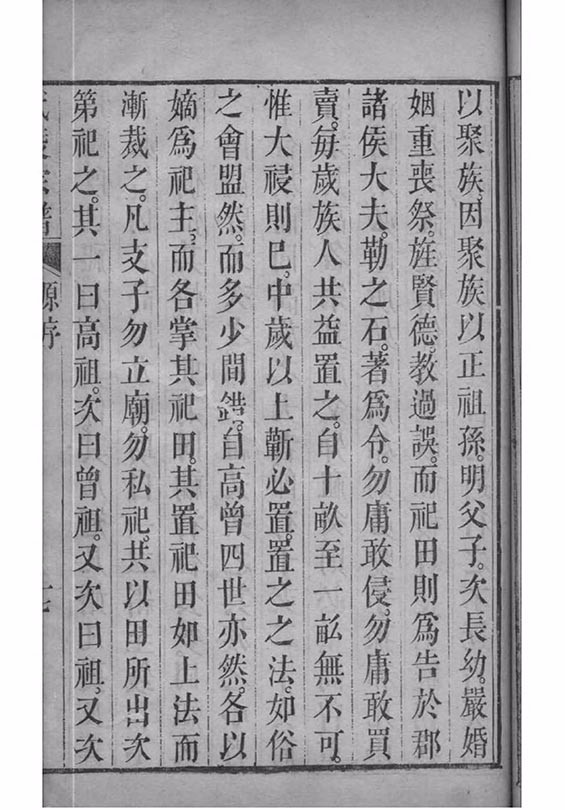 以聚族。因聚族以正祖孫。明父子。次長幼。嚴婚
姻。重喪祭。旌賢德。教過誤。而祀田則爲告於郡
諸侯大夫。勒之石。著爲令。勿庸敢侵。勿庸敢買
賣。每歲族人共益置之。自十畝至一畝無不可。
惟大祲則巳。中歲以上蘄必置。置之之法。如俗
之會盟然。而多少間錯。自高曾四世亦然。各以
嫡爲祀主。而各掌其祀田。其置祀田如上法而
漸裁之。凡支子勿立廟。勿私祀。共以田所出次
第祀之。其一曰高祖。次曰曾祖。又次曰祖。又次
譜 源序